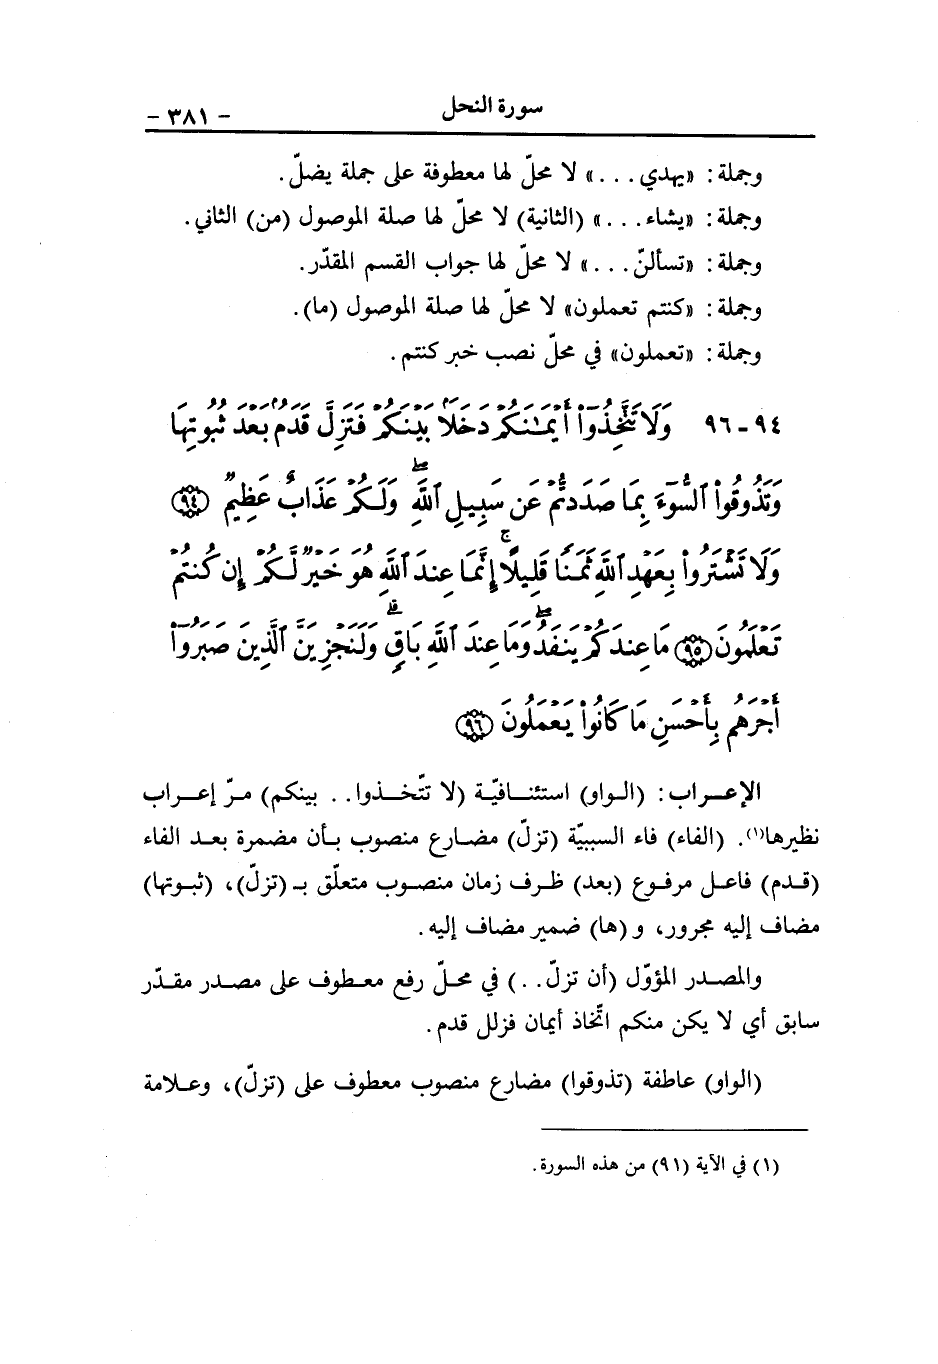 سورة النحل
- ٣٨١ -
وجملة: «يهدي...» لا محلّ لها معطوفة على جملة يضلّ.
وجملة: «يشاء...» (الثانية) لا محلّ لها صلة الموصول (من) الثاني.
وجملة: «تسألنّ...» لا محلّ لها جواب القسم المقدّر.
وجملة: «كنتم تعملون» لا محلّ لها صلة الموصول (ما).
وجملة: «تعملون» في محلّ نصب خبر كنتم.
٩٤ - ٩٦ وَلَا تَتَّخِذُوٓا۟ أَيْمَٰنَكُمْ دَخَلًۢا بَيْنَكُمْ فَتَزِلَّ قَدَمٌۢ بَعْدَ ثُبُوتِهَا
وَتَذُوقُوا۟ ٱلسُّوٓءَ بِمَا صَدَدتُّمْ عَن سَبِيلِ ٱللَّهِ ۖ وَلَكُمْ عَذَابٌ عَظِيمٌ ﴿٩٤﴾
وَلَا تَشْتَرُوا۟ بِعَهْدِ ٱللَّهِ ثَمَنًا قَلِيلًا ۚ إِنَّمَا عِندَ ٱللَّهِ هُوَ خَيْرٌ لَّكُمْ إِن كُنتُمْ
تَعْلَمُونَ ﴿٩٥﴾ مَا عِندَكُمْ يَنفَدُ ۖ وَمَا عِندَ ٱللَّهِ بَاقٍ ۗ وَلَنَجْزِيَنَّ ٱلَّذِينَ صَبَرُوٓا۟
أَجْرَهُم بِأَحْسَنِ مَا كَانُوا۟ يَعْمَلُونَ ﴿٩٦﴾
الإعراب: (الواو) استئنافيّة (لا تتّخذوا.. بينكم) مرّ إعراب
نظيرها(١). (الفاء) فاء السببيّة (تزلّ) مضارع منصوب بأن مضمرة بعد الفاء
(قدم) فاعل مرفوع (بعد) ظرف زمان منصوب متعلّق بـ (تزلّ)، (ثبوتها)
مضاف إليه مجرور، و (ها) ضمير مضاف إليه.
والمصدر المؤوّل (أن تزلّ..) في محلّ رفع معطوف على مصدر مقدّر
سابق أي لا يكن منكم اتّخاذ أيمان فزلل قدم.
(الواو) عاطفة (تذوقوا) مضارع منصوب معطوف على (تزلّ)، وعلامة
(١) في الآية (٩١) من هذه السورة.